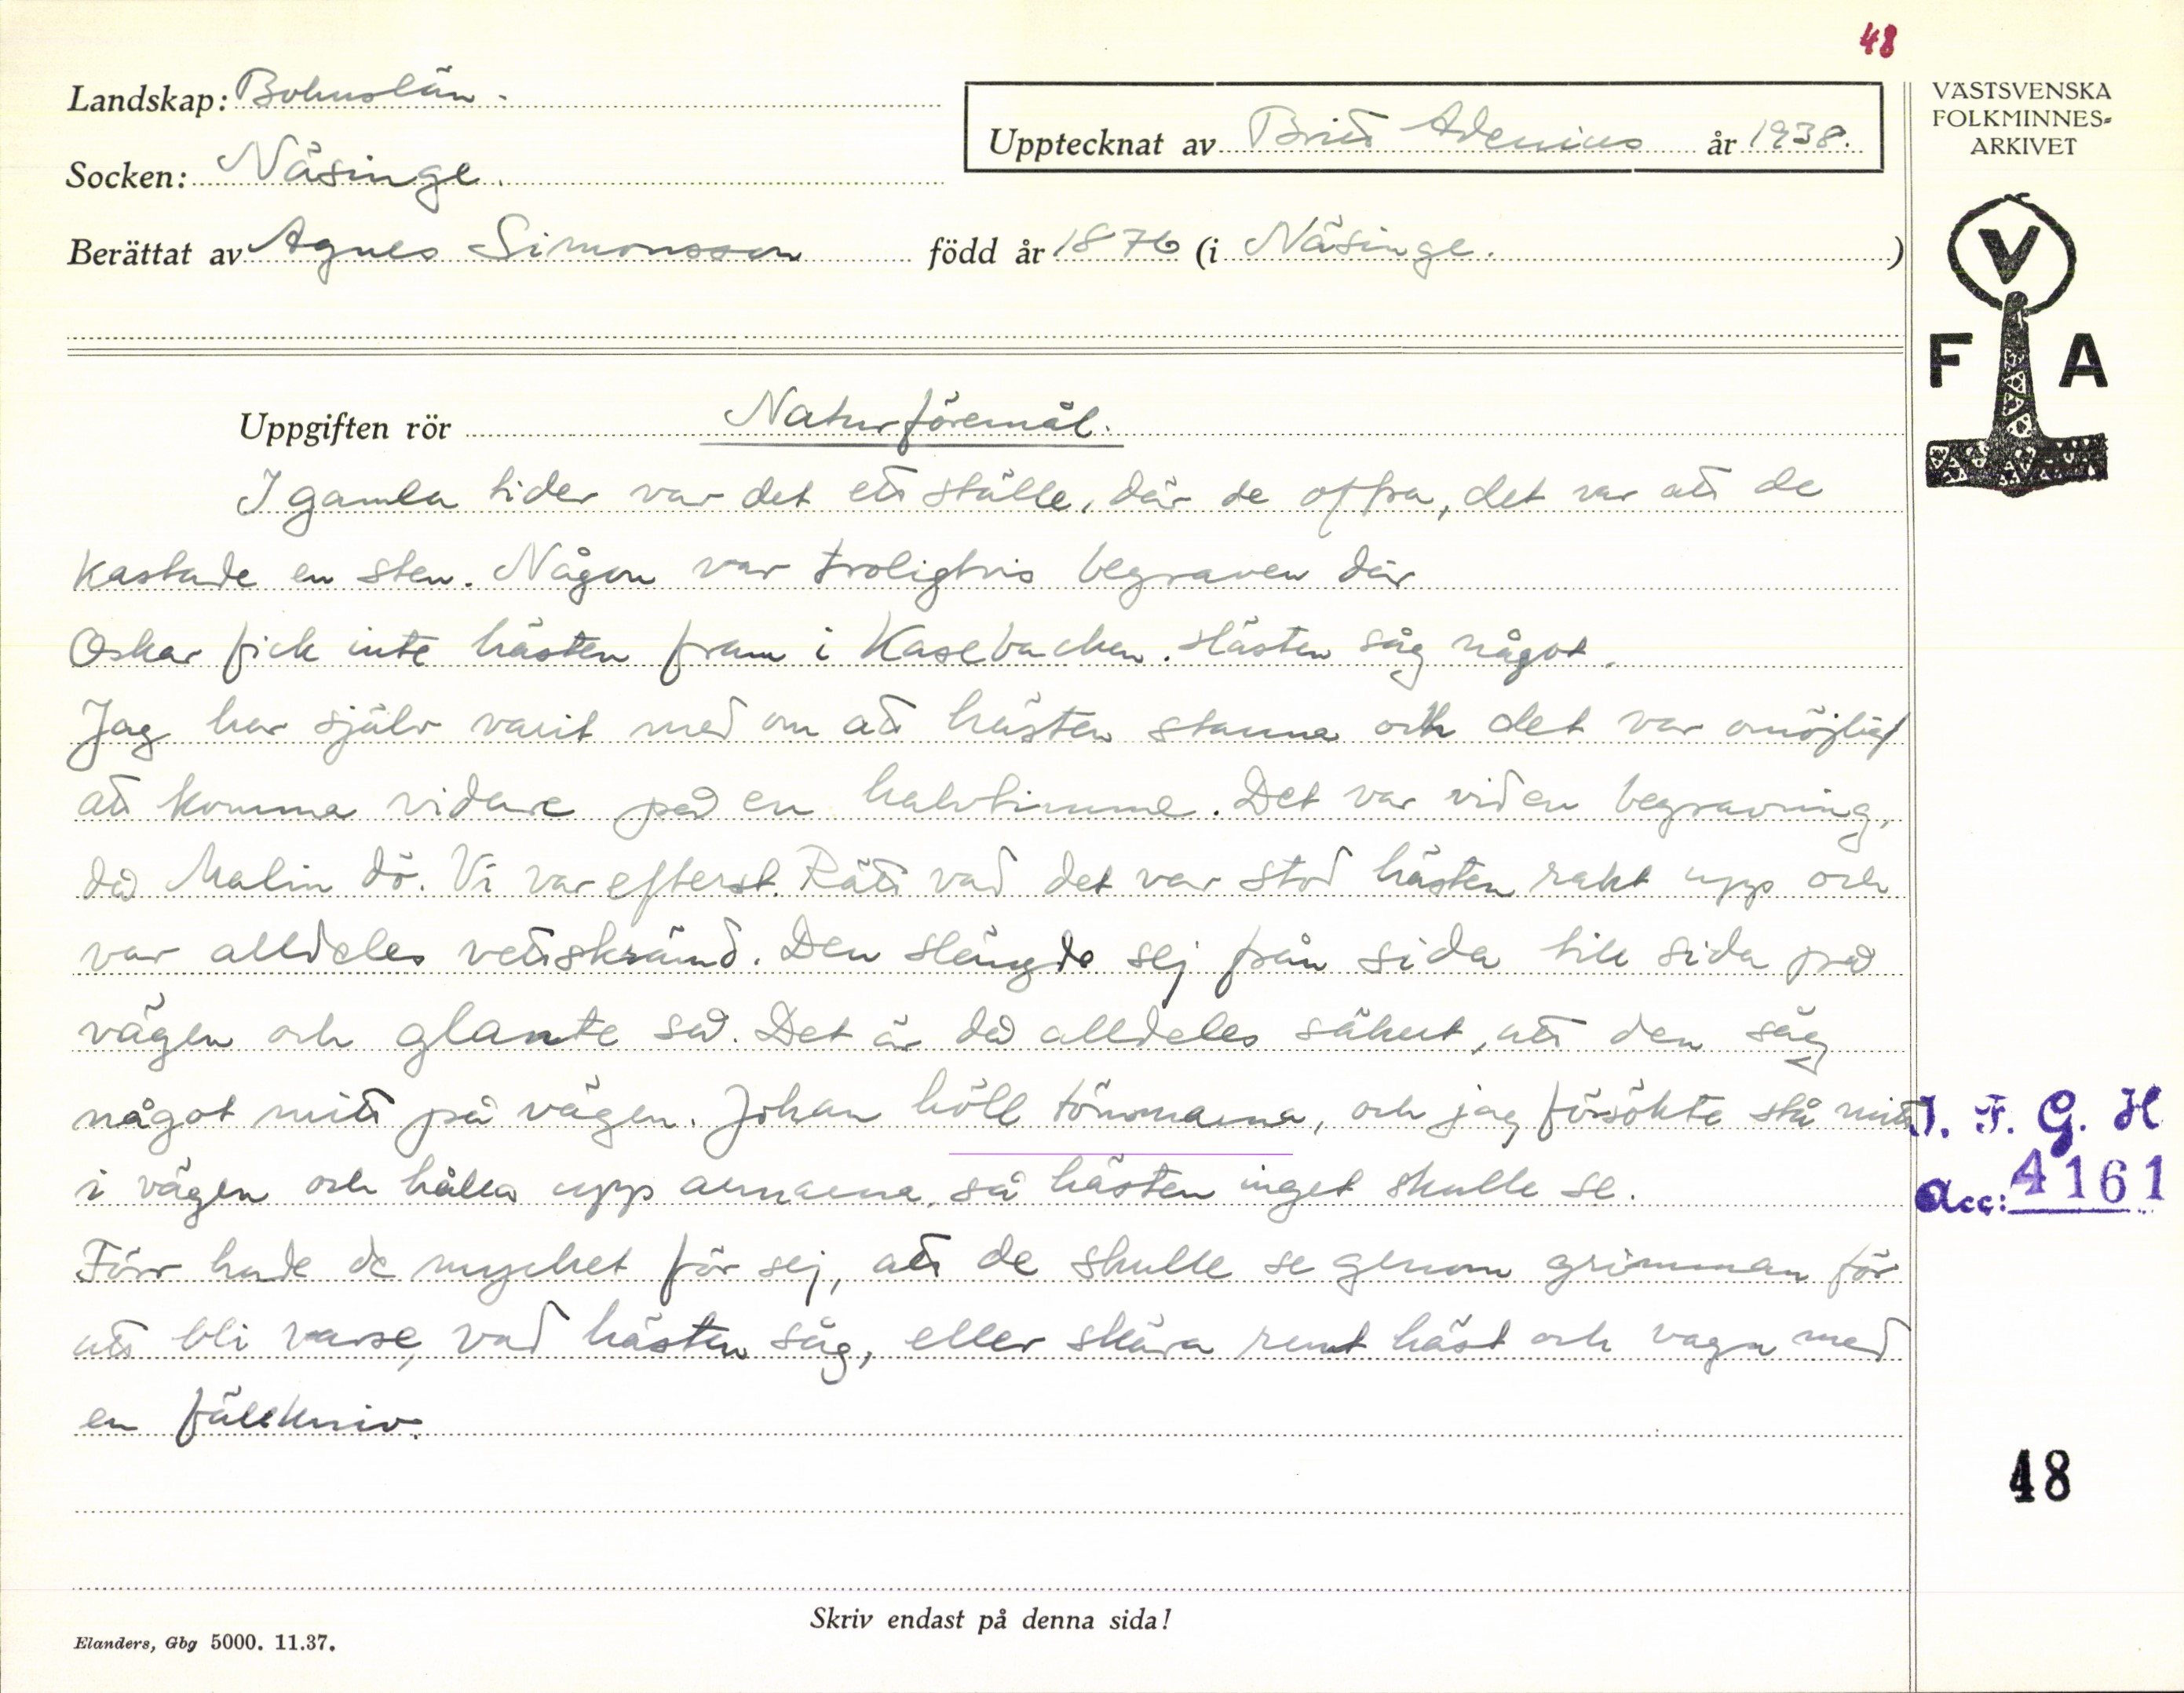 48
Landskap: Bohuslän.
Upptecknat av Britt Adenius år 1938.
Socken: Näsinge.
Berättat av Agnes Simonsson född år 1876 (i Näsinge.)
VÄSTSVENSKA
FOLKMINNES-
ARKIVET
V
F A
Uppgiften rör Naturföremål.
I gamla tider var det ett ställe, där de offra, det var att de
kastade en sten. Någon var troligtvis begraven där
Oskar fick inte hästen fram i Kasebacken. Hästen såg något.
Jag har själv varit med om att hästen stanna och det var omöjligt
att komma vidare på en halvtimme. Det var vid en begravning,
då Malin dö. Vi var efterst. Rätt vad det var stod hästen rakt upp och
var alldeles vettskrämd. Den slängde sej från sida till sida på
vägen och glante så. Det är då alldeles säkert, att den såg
något mitt på vägen. Johan höll tömmarna, och jag försökte stå mitt
i vägen och hålla upp armarna, så hästen inget skulle se.
Förr hade de mycket för sej, att de skulle se genom grimman för
att bli varse, vad hästen såg, eller skära runt häst och vagn med
en fällkniv.
I. F. G. H
Acc: 4161
48
Skriv endast på denna sida!
Elanders, Gbg 5000. 11.37.